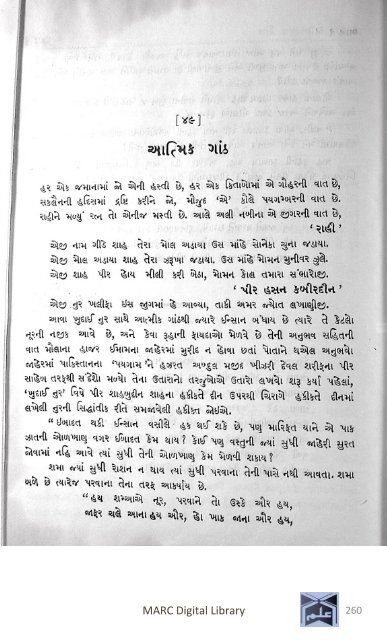 [ ૪૯ ]
આત્મિક ગાંઠ
હર એક જમાનામાં જે એની હસ્તી છે, હર એક કિતાબોમાં એ ગૌહરની વાત છે,
સકલૈનની હદિસમાં દ્રષ્ટિ કરીને જે, મૌજુદ 'એ' કૌલે પયગમ્બરની વાત છે.
રાહીને મળ્યું રત્ન તો એનીજ મસ્તી છે. આલે અલી નબીના એ જીગરની વાત છે,
'રાહી'
એજી નામ ગીંદે શાહ તેરા મોલ અડાયા ઉસ માંહે સોનેકા ચુના જડાયા.
એજી મોલ અડાયા શાહ તેરા ઝરૂખા જડાયા. ઉસ માંહે મોમન મુનીવર ઝુલે.
એજી શાહ પીર હોય મીલી કરી બેઠા, મોમન કાજ તમારા સંભારોજી.
'પીર હસન કબીરદીન'
એજી નુર ખલીફા ઇસ જીગમાં હે આવ્યા, તાકી અમર જ્યોત લખાણીજી.
આવા ખુદાઈ નુર સાથે આત્મીક ગાંઠથી જ્યારે ઈન્સાન બંધાય છે ત્યારે તે કેટલો
નૂરની નજીક આવે છે, અને કેવા રૂહાની ફાયદાઓ મેળવે છે તેની અનુભવ સહિતની
વાત મૌલાના હાજર ઈમામના જાહેરમાં મુરીદ ન હોવા છતાં પોતાને થએલ અનુભવો
જાહેરમાં પાકિસ્તાનના 'પયગામ'ને હઝરત અબ્દુલ મજીદ ખીઝરી દેવલ શરીફના પીર
સાહેબ તરફથી સંદેશો મળ્યો. તેના ઉતારાનો તરજુઓ ઉતારો લખવો શરૂ કર્યા પહેલાં,
'ખુદાઈ નુર' વિષે પીર શાહબુદ્દીન શાહના હકીકતે દીન ઉપરથી ચિરાગે હકીકતે દીનમાં
લખેલી નુરની સિદ્ધાંતીક રીતે સમજાવેલી હકીકત જોઇએ.
" ઈબાદત થકી ઈન્સાન વસીલે હક થઈ શકે છે, પણ મારિફત યાને એ પાક
ઝાતની ઓળખાણ વગર ઈબાદત કેમ થાય? કોઈ પણ વસ્તુની જ્યાં સુધી જાહેરી સુરત
જોવામાં નહિ આવે ત્યાં સુધી તેની ઓળખાણ કેમ મેળવી શકાય?
શમા જ્યાં સુધી રોશન ન થાય ત્યાં સુધી પરવાના તેની પાસે નથી આવતા. શમા
બળે છે ત્યારેજ પરવાના તેના તરફ આકર્ષાય છે.
"હય શમ્આએ નૂર, પરવાને તો ઉસ્કે ઔર હય,
જાફર ચલે આના હય ઔર, હો ખાક જાના ઔર હય,
MARC Digital Library
260